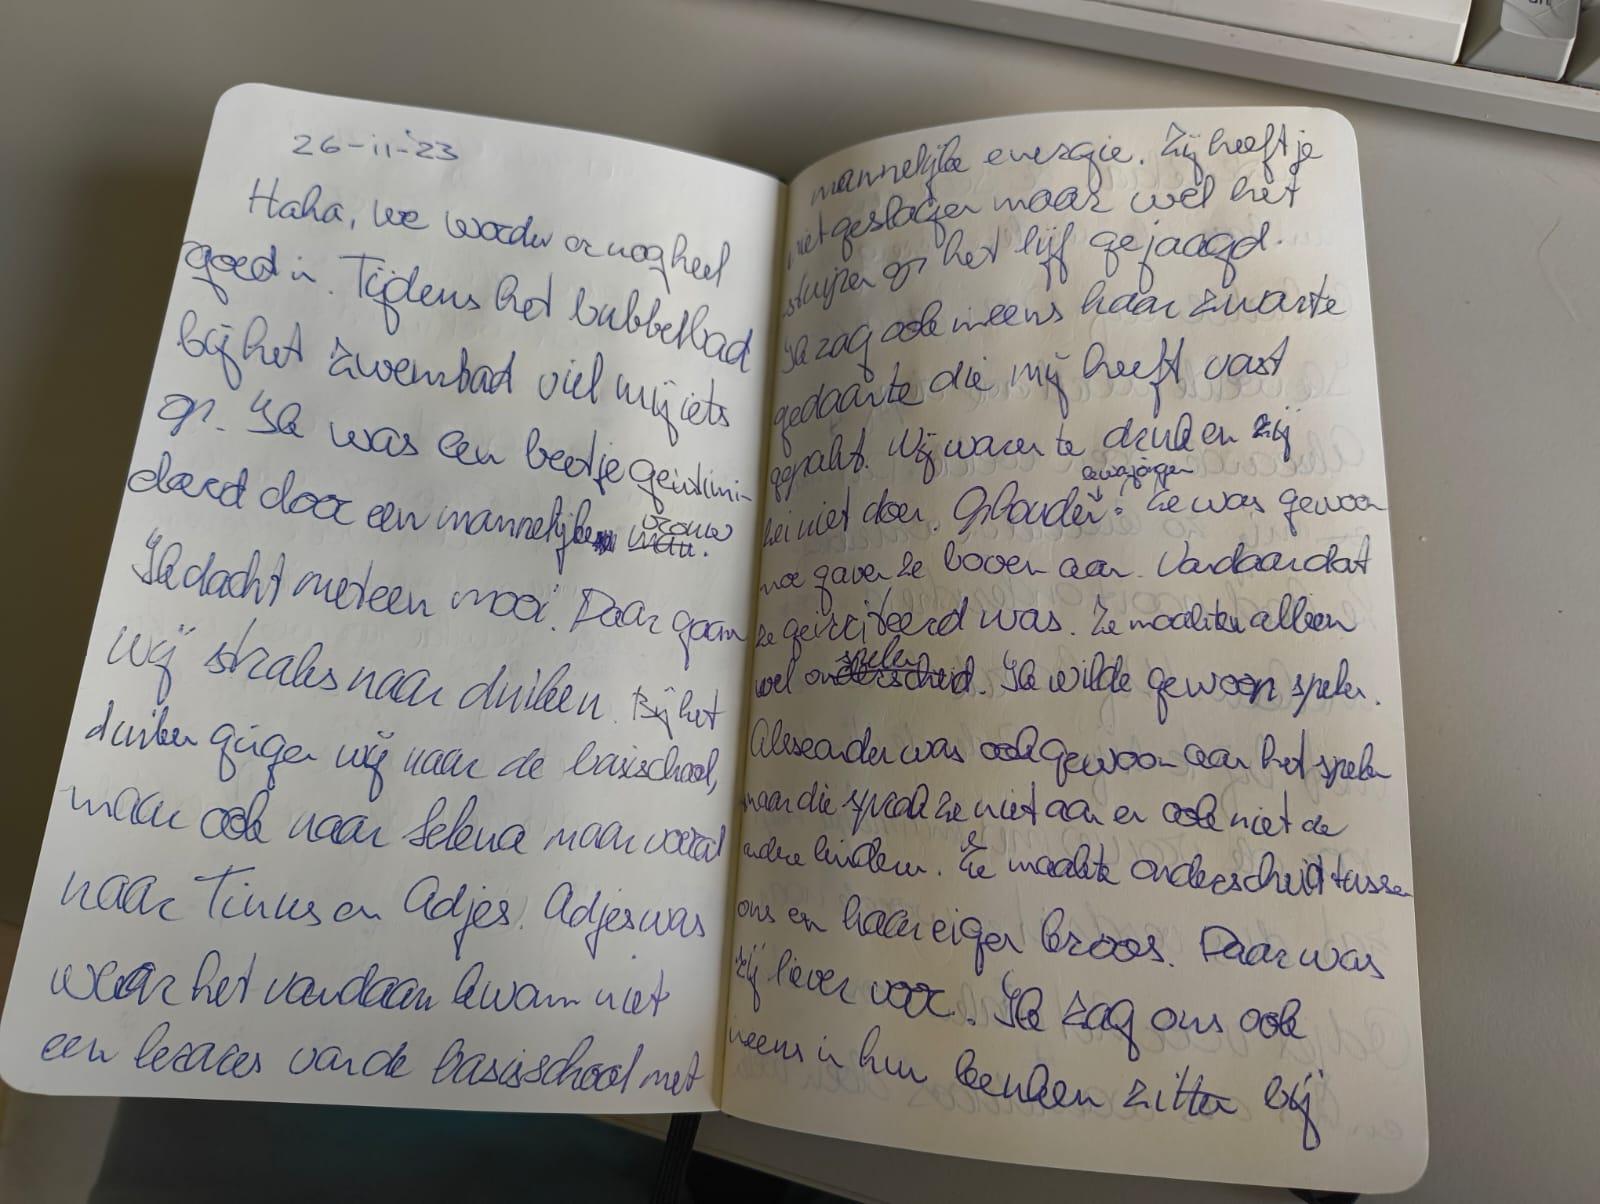 26-11-'23
Haha, we worden er nog heel
goed in. Tijdens het bubbelbad
bij het zwembad viel mij iets
op. Ik was een beetje geintimi-
deerd door een mannelijke vrouw
man.
Ik dacht meteen mooi. Daar gaan
wij straks naar duiken. Bij het
duiken gingen wij naar de basisschool,
maar ook naar Selena maar vooral
naar Tinus en Adjes. Adjes was
waar het vandaan kwam niet
een lerares van de basisschool met
mannelijke energie. Zij heeft je
niet geslagen maar wel het
stuipen op het lijf gejaagd.
Ik zag ook ineens haar zwarte
gedaante die mij heeft vast
gepakt. Wij waren te druk en zij
zei niet doen. Ophouden!
Ze was gewoon
moe gaven ze boven aan. Vandaar dat
ze geirriteerd was. Ze maakten alleen
spelen
wel onderscheid. Ik wilde gewoon spelen.
Alexander was ook gewoon aan het spelen
maar die sprak ze niet aan en ook niet de
andere kinderen. Ze maakte onderscheid tussen
ons en haar eigen kroos. Daar was
zij liever voor. Ik zag ons ook
ineens in hun keuken zitten bij